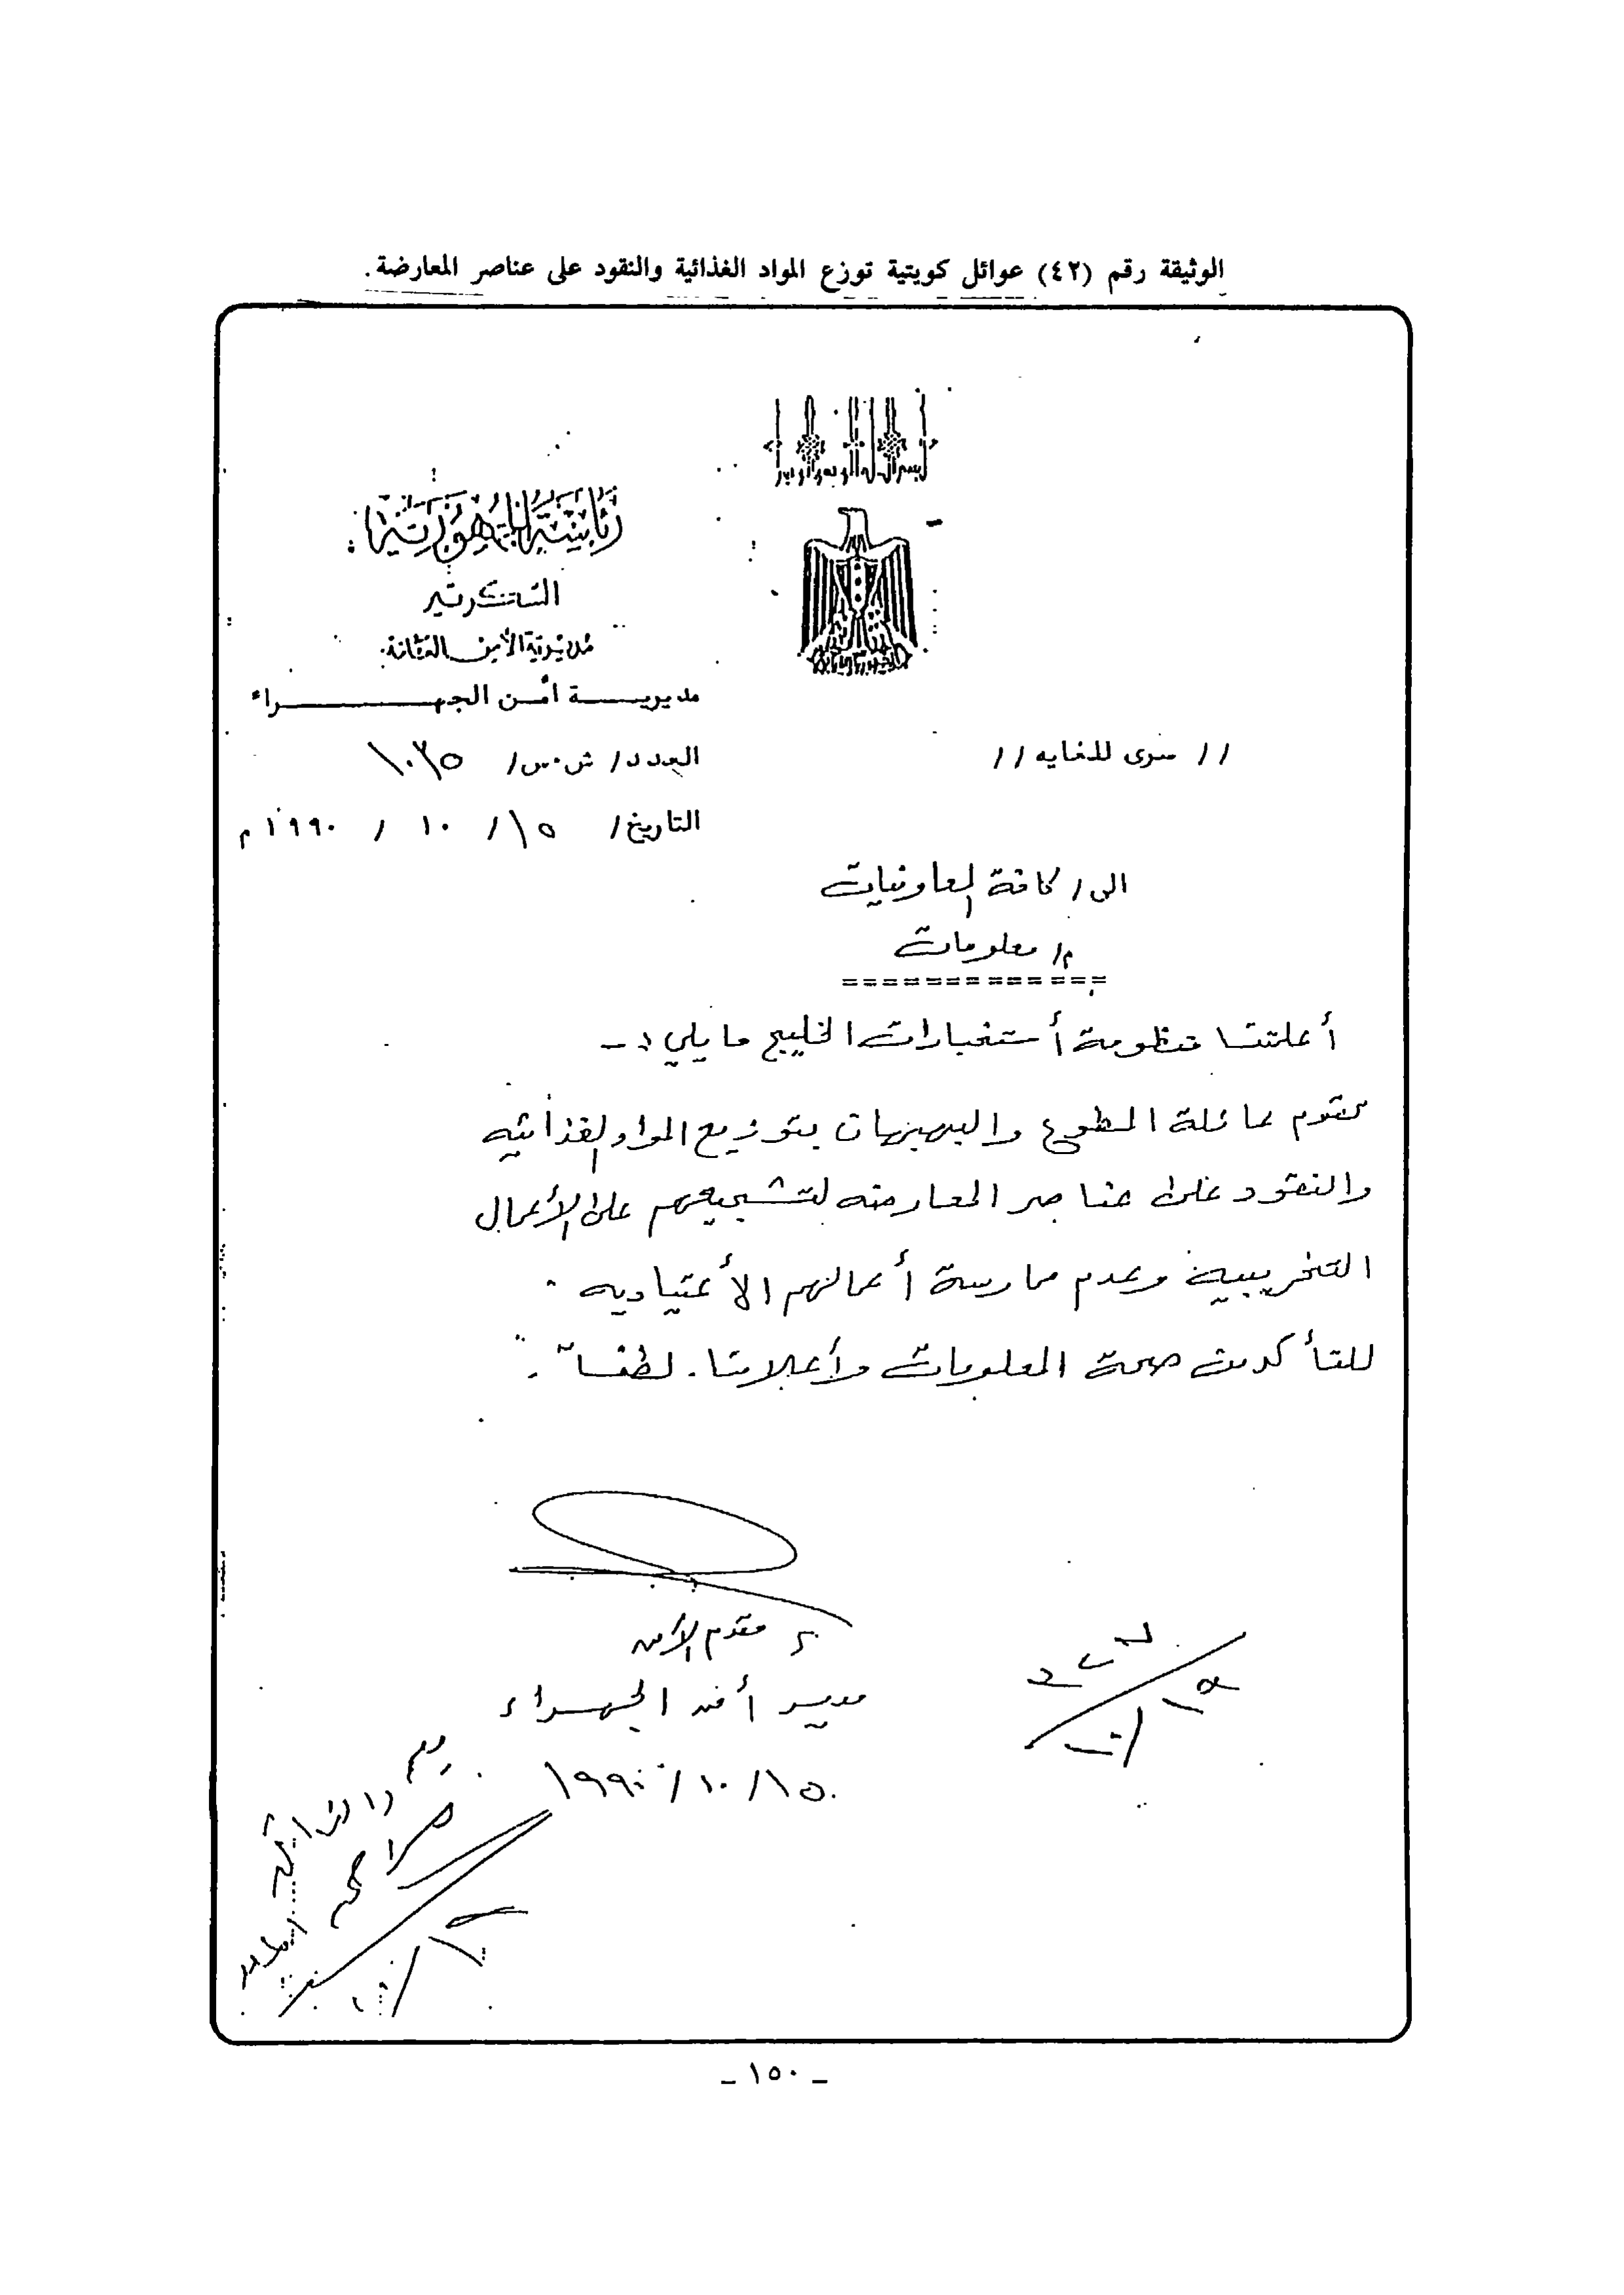 الوثيقة رقم (٤٢) عوائل كويتية توزع المواد الغذائية والنقود على عناصر المعارضة.
بسم الله الرحمن الرحيم
رئاسة الجمهورية
السكرتير
مديرية الأمن العامة
مديرية أمن الجهراء
// سرى للغايه //
العدد/ ش.س/ ١٠٣٥
التاريخ/ ١٥/ ١٠ / ١٩٩٠ م
الى/ كافة المعاونيات
م/ معلومات
=============
أعلمتنا منظومة أستخبارات الخليج مايلي :-
تقوم عائلة المطوع والبهبهان بتوزيع المواد الغذائيه
والنقود على عناصر المعارضه لتشجيعهم على الأعمال
التخريبية وعدم ممارسة أعمالهم الأعتياديه .
للتأكد من صحة المعلومات وأعلامنا . لطفاً .
مقدم الأمن
مدير أمن الجهراء
١٥/ ١٠ / ١٩٩٠
١٥
- ١٥٠ -